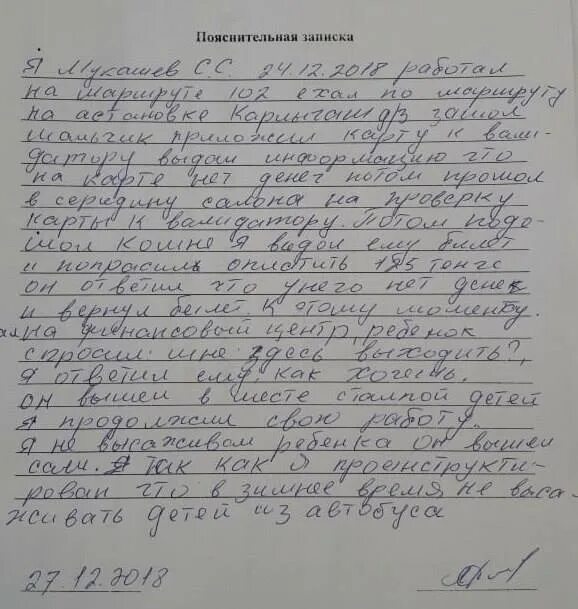 Пояснительная записка
Я Мукашев С.С. 24.12.2018 работал
на маршруте 102 ехал по маршруту
на астановке д/з зашол
мальчик приложил карту к вали-
датору выдал информацию что
на карте нет денег потом прошол
в середину салона на проверку
карты к валидатору. Потом подо-
шол комне я выдол ему билет
и попросил оплотить 185 тенге
он ответил что унего нет денек
и вернул билет к этому моменту.
на финансовый центр, ребенок
спросил: мне здесь выходить?,
я ответил ему: как хочешь.
он вышел в месте столпой детей
я продолжил свою работу.
я не высаживал ребенка он вышел
сам. Я так как я проинструкти-
рован что в зимнее время не выса-
живать детей из автобуса
27.12.2018